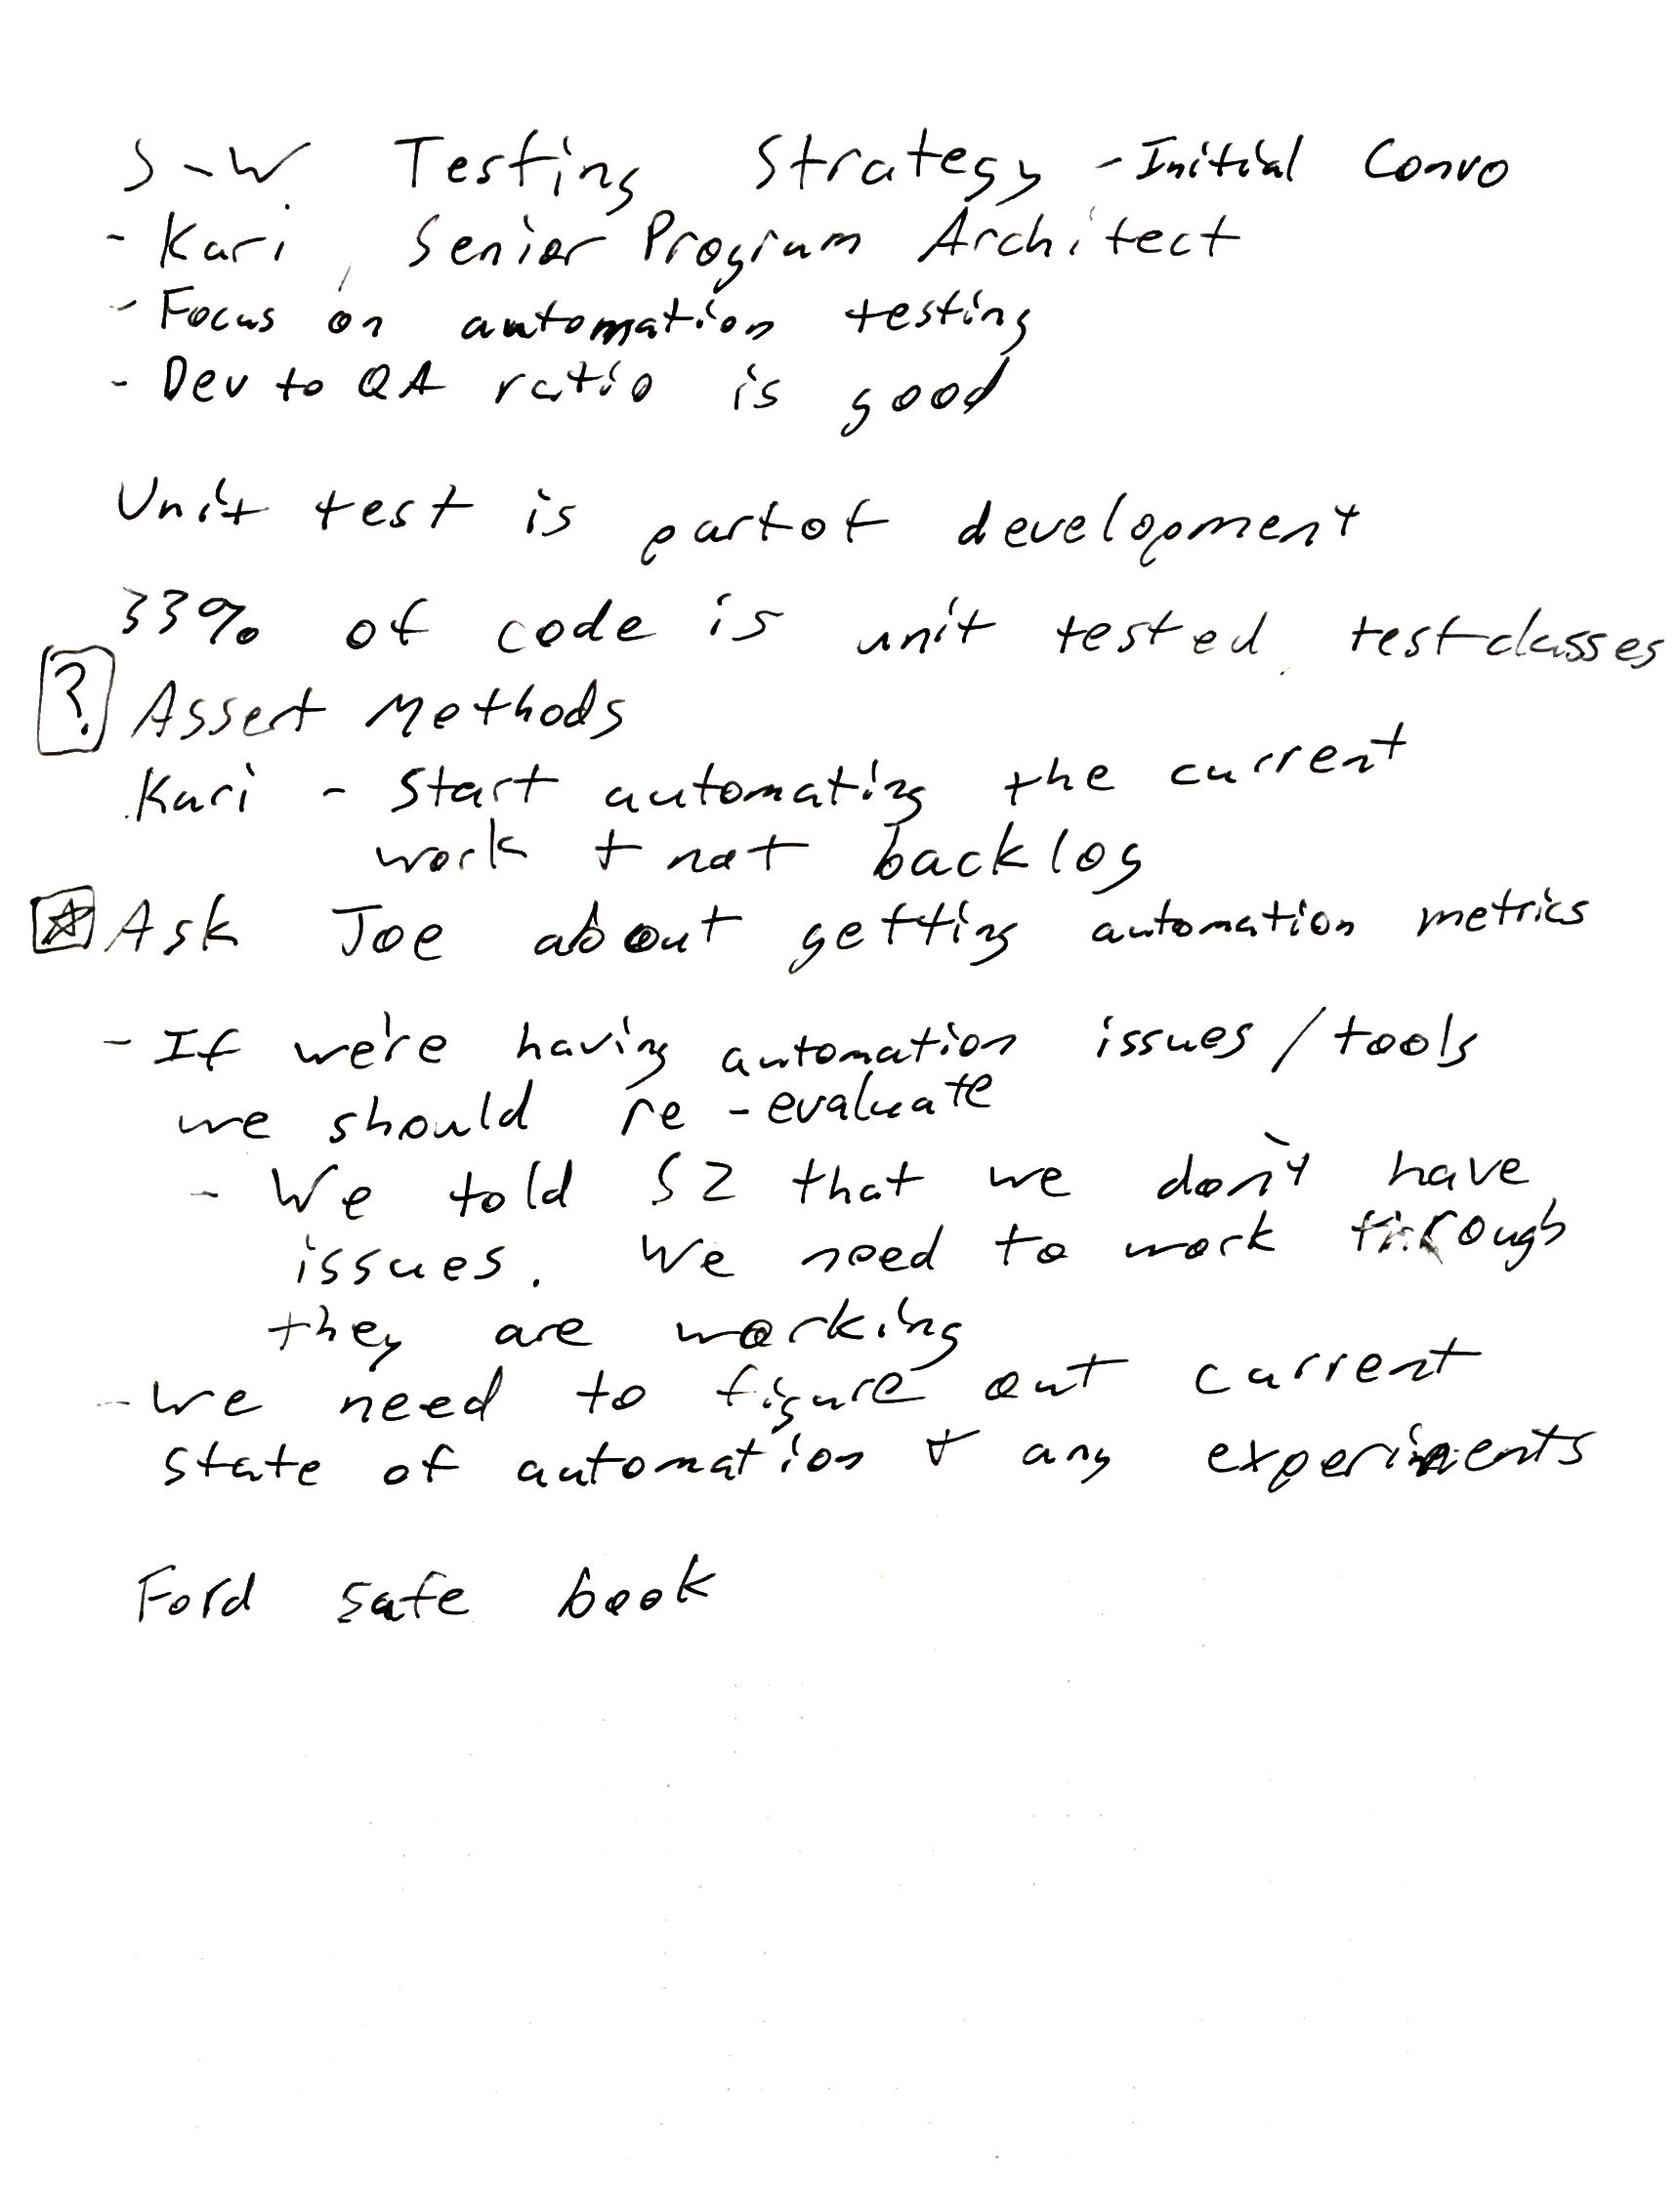 S-W Testing Strategy - Initial Convo
- Kari, Senior Program Architect
- Focus on automation testing
- Dev to QA ratio is good
Unit test is part of development
33% of code is unit tested. test classes
? Assert Methods
Kari - Start automating the current
work + not backlog
Ask Joe about getting automation metrics
- If we're having automation issues/tools
we should re-evaluate
- We told S2 that we don't have
issues. We need to work through
they are working
- We need to figure out current
state of automation + any experiments
Ford safe book